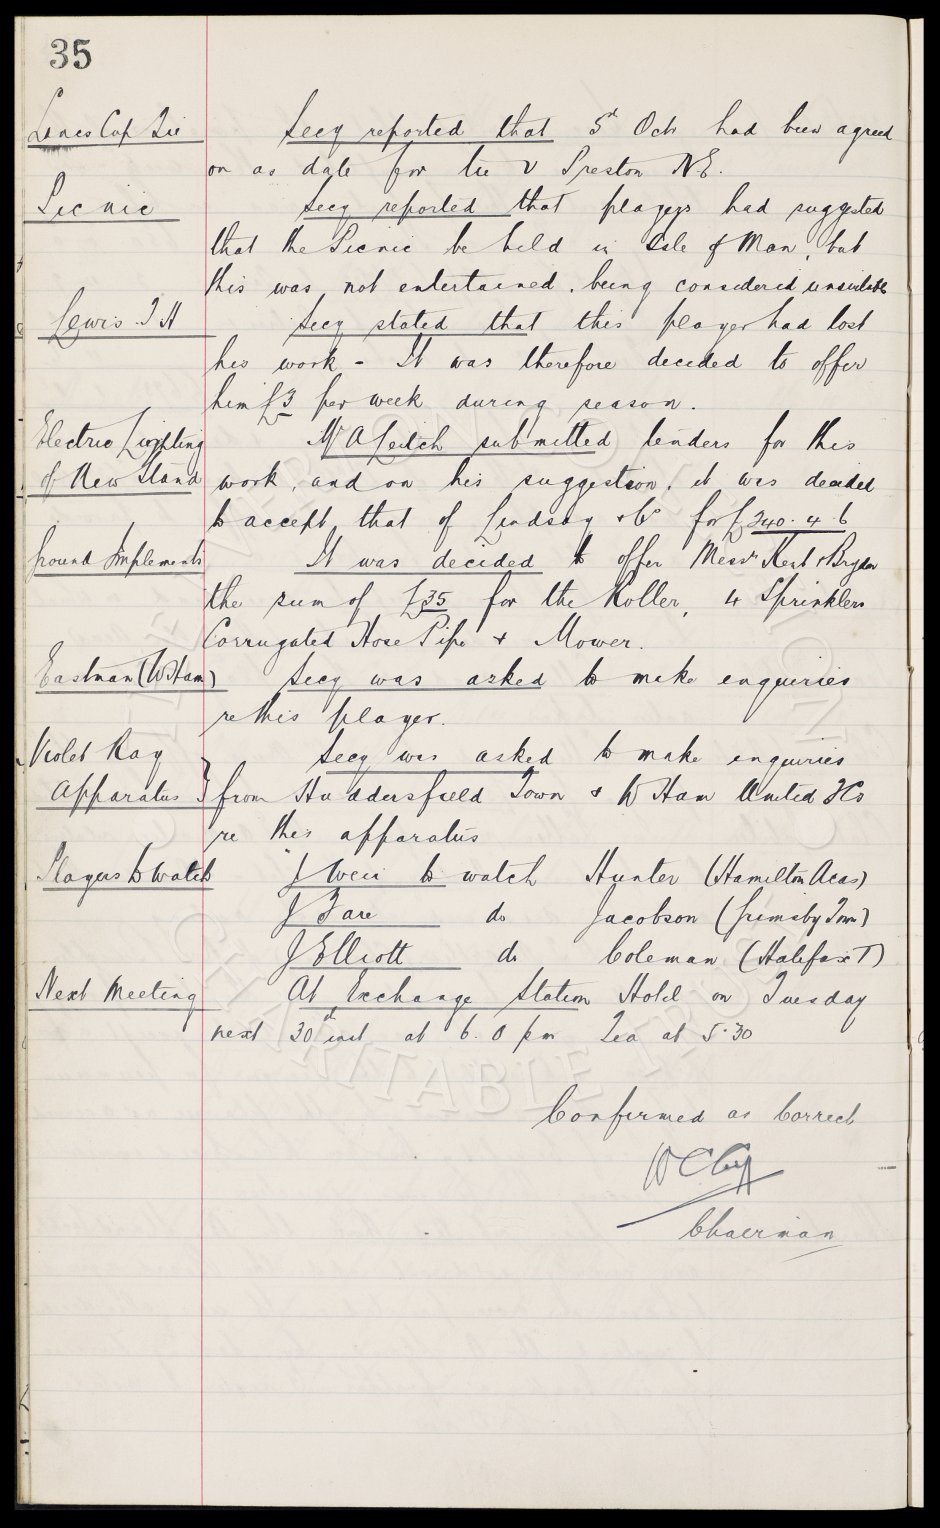 35
Lancs Cup Tie Secy reported that 5th Oct had been agreed
on as date for tie v Preston NE.
Picnic Secy reported that players had suggested
that the Picnic be held in Isle of Man, but
this was not entertained, being considered unsuitable
Lewis. T H Secy stated that this player had lost
his work - It was therefore decided to offer
him £3 per week during season.
Electric Lighting Mr A Leitch submitted tenders for this
of New Stand work, and on his suggestion, it was decided
to accept that of Lindsay & Co for £340. 4. 6
Ground Implements It was decided to offer Messrs Kent & Brydon
the sum of £35 for the Roller, 4 Sprinklers
Corrugated Hose Pipe & Mower.
Eastman (W Ham) Secy was asked to make enquiries
re this player.
Violet Ray Secy was asked to make enquiries
Apparatus } from Huddersfield Town & W Ham United FCs
re this apparatus
Players to Watch J Weir to watch Hunter (Hamilton Acas)
J Fare do Jacobson (Grimsby Town)
J Elliott do Coleman (Halifax T)
Next Meeting At Exchange Station Hotel on Tuesday
next 30th inst at 6.0 pm Tea at 5.30
Confirmed as Correct
Chairman
EVERTON COLLECTION
CHARITABLE TRUST